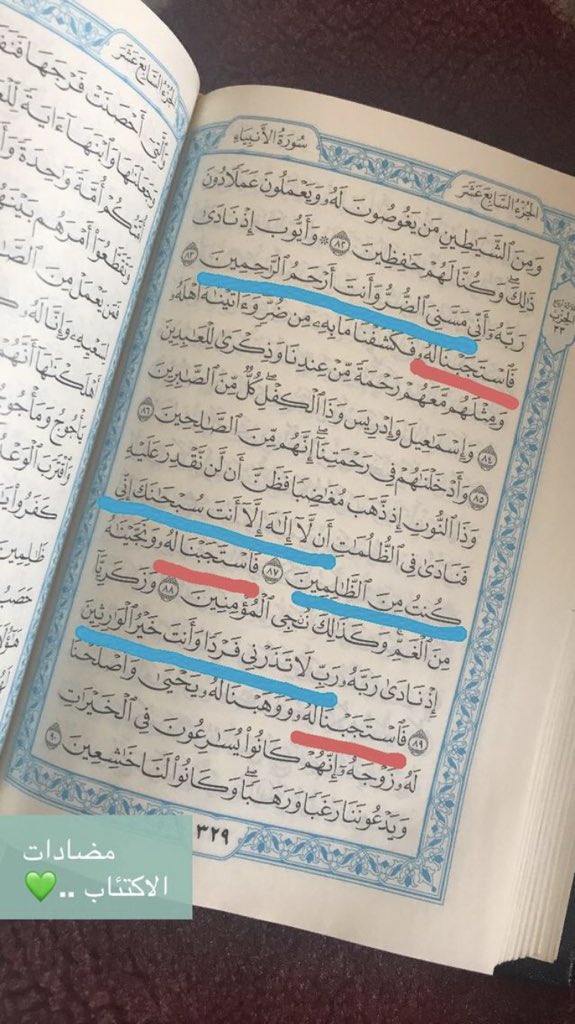 الجُزْءُ السَّابِعَ عَشَرَ
سُورَةُ الأَنْبِيَاءِ
وَمِنَ ٱلشَّيَٰطِينِ مَن يَغُوصُونَ لَهُۥ وَيَعْمَلُونَ عَمَلًا دُونَ
ذَٰلِكَ ۖ وَكُنَّا لَهُمْ حَٰفِظِينَ ٨٢ ۞ وَأَيُّوبَ إِذْ نَادَىٰ
رَبَّهُۥٓ أَنِّي مَسَّنِيَ ٱلضُّرُّ وَأَنتَ أَرْحَمُ ٱلرَّٰحِمِينَ ٨٣
فَٱسْتَجَبْنَا لَهُۥ فَكَشَفْنَا مَا بِهِۦ مِن ضُرٍّ ۖ وَءَاتَيْنَٰهُ أَهْلَهُۥ
وَمِثْلَهُم مَّعَهُمْ رَحْمَةً مِّنْ عِندِنَا وَذِكْرَىٰ لِلْعَٰبِدِينَ
٨٤ وَإِسْمَٰعِيلَ وَإِدْرِيسَ وَذَا ٱلْكِفْلِ ۖ كُلٌّ مِّنَ ٱلصَّٰبِرِينَ
٨٥ وَأَدْخَلْنَٰهُمْ فِي رَحْمَتِنَآ ۖ إِنَّهُم مِّنَ ٱلصَّٰلِحِينَ ٨٦
وَذَا ٱلنُّونِ إِذ ذَّهَبَ مُغَٰضِبًا فَظَنَّ أَن لَّن نَّقْدِرَ عَلَيْهِ
فَنَادَىٰ فِي ٱلظُّلُمَٰتِ أَن لَّآ إِلَٰهَ إِلَّآ أَنتَ سُبْحَٰنَكَ إِنِّي
كُنتُ مِنَ ٱلظَّٰلِمِينَ ٨٧ فَٱسْتَجَبْنَا لَهُۥ وَنَجَّيْنَٰهُ
مِنَ ٱلْغَمِّ ۚ وَكَذَٰلِكَ نُـۨجِي ٱلْمُؤْمِنِينَ ٨٨ وَزَكَرِيَّآ
إِذْ نَادَىٰ رَبَّهُۥ رَبِّ لَا تَذَرْنِي فَرْدًا وَأَنتَ خَيْرُ ٱلْوَٰرِثِينَ
٨٩ فَٱسْتَجَبْنَا لَهُۥ وَوَهَبْنَا لَهُۥ يَحْيَىٰ وَأَصْلَحْنَا
لَهُۥ زَوْجَهُۥٓ ۚ إِنَّهُمْ كَانُوا۟ يُسَٰرِعُونَ فِي ٱلْخَيْرَٰتِ
وَيَدْعُونَنَا رَغَبًا وَرَهَبًا ۖ وَكَانُوا۟ لَنَا خَٰشِعِينَ ٩٠
٣٢٩
الجُزْءُ السَّابِعَ عَشَرَ
وَٱلَّتِيٓ أَحْصَنَتْ فَرْجَهَا
وَجَعَلْنَٰهَا وَٱبْنَهَآ ءَايَةً
أُمَّةً وَٰحِدَةً
وَتَقَطَّعُوٓا۟ أَمْرَهُم بَيْنَهُمْ
فَمَن يَعْمَلْ مِنَ
لِسَعْيِهِۦ وَإِنَّا لَهُۥ
أَهْلَكْنَٰهَآ أَنَّهُمْ
يَأْجُوجُ وَمَأْجُوجُ
وَٱقْتَرَبَ ٱلْوَعْدُ
كَفَرُوا۟
ظَٰلِمِينَ
حَصَبُ
مضادات
الاكتئاب ..💚